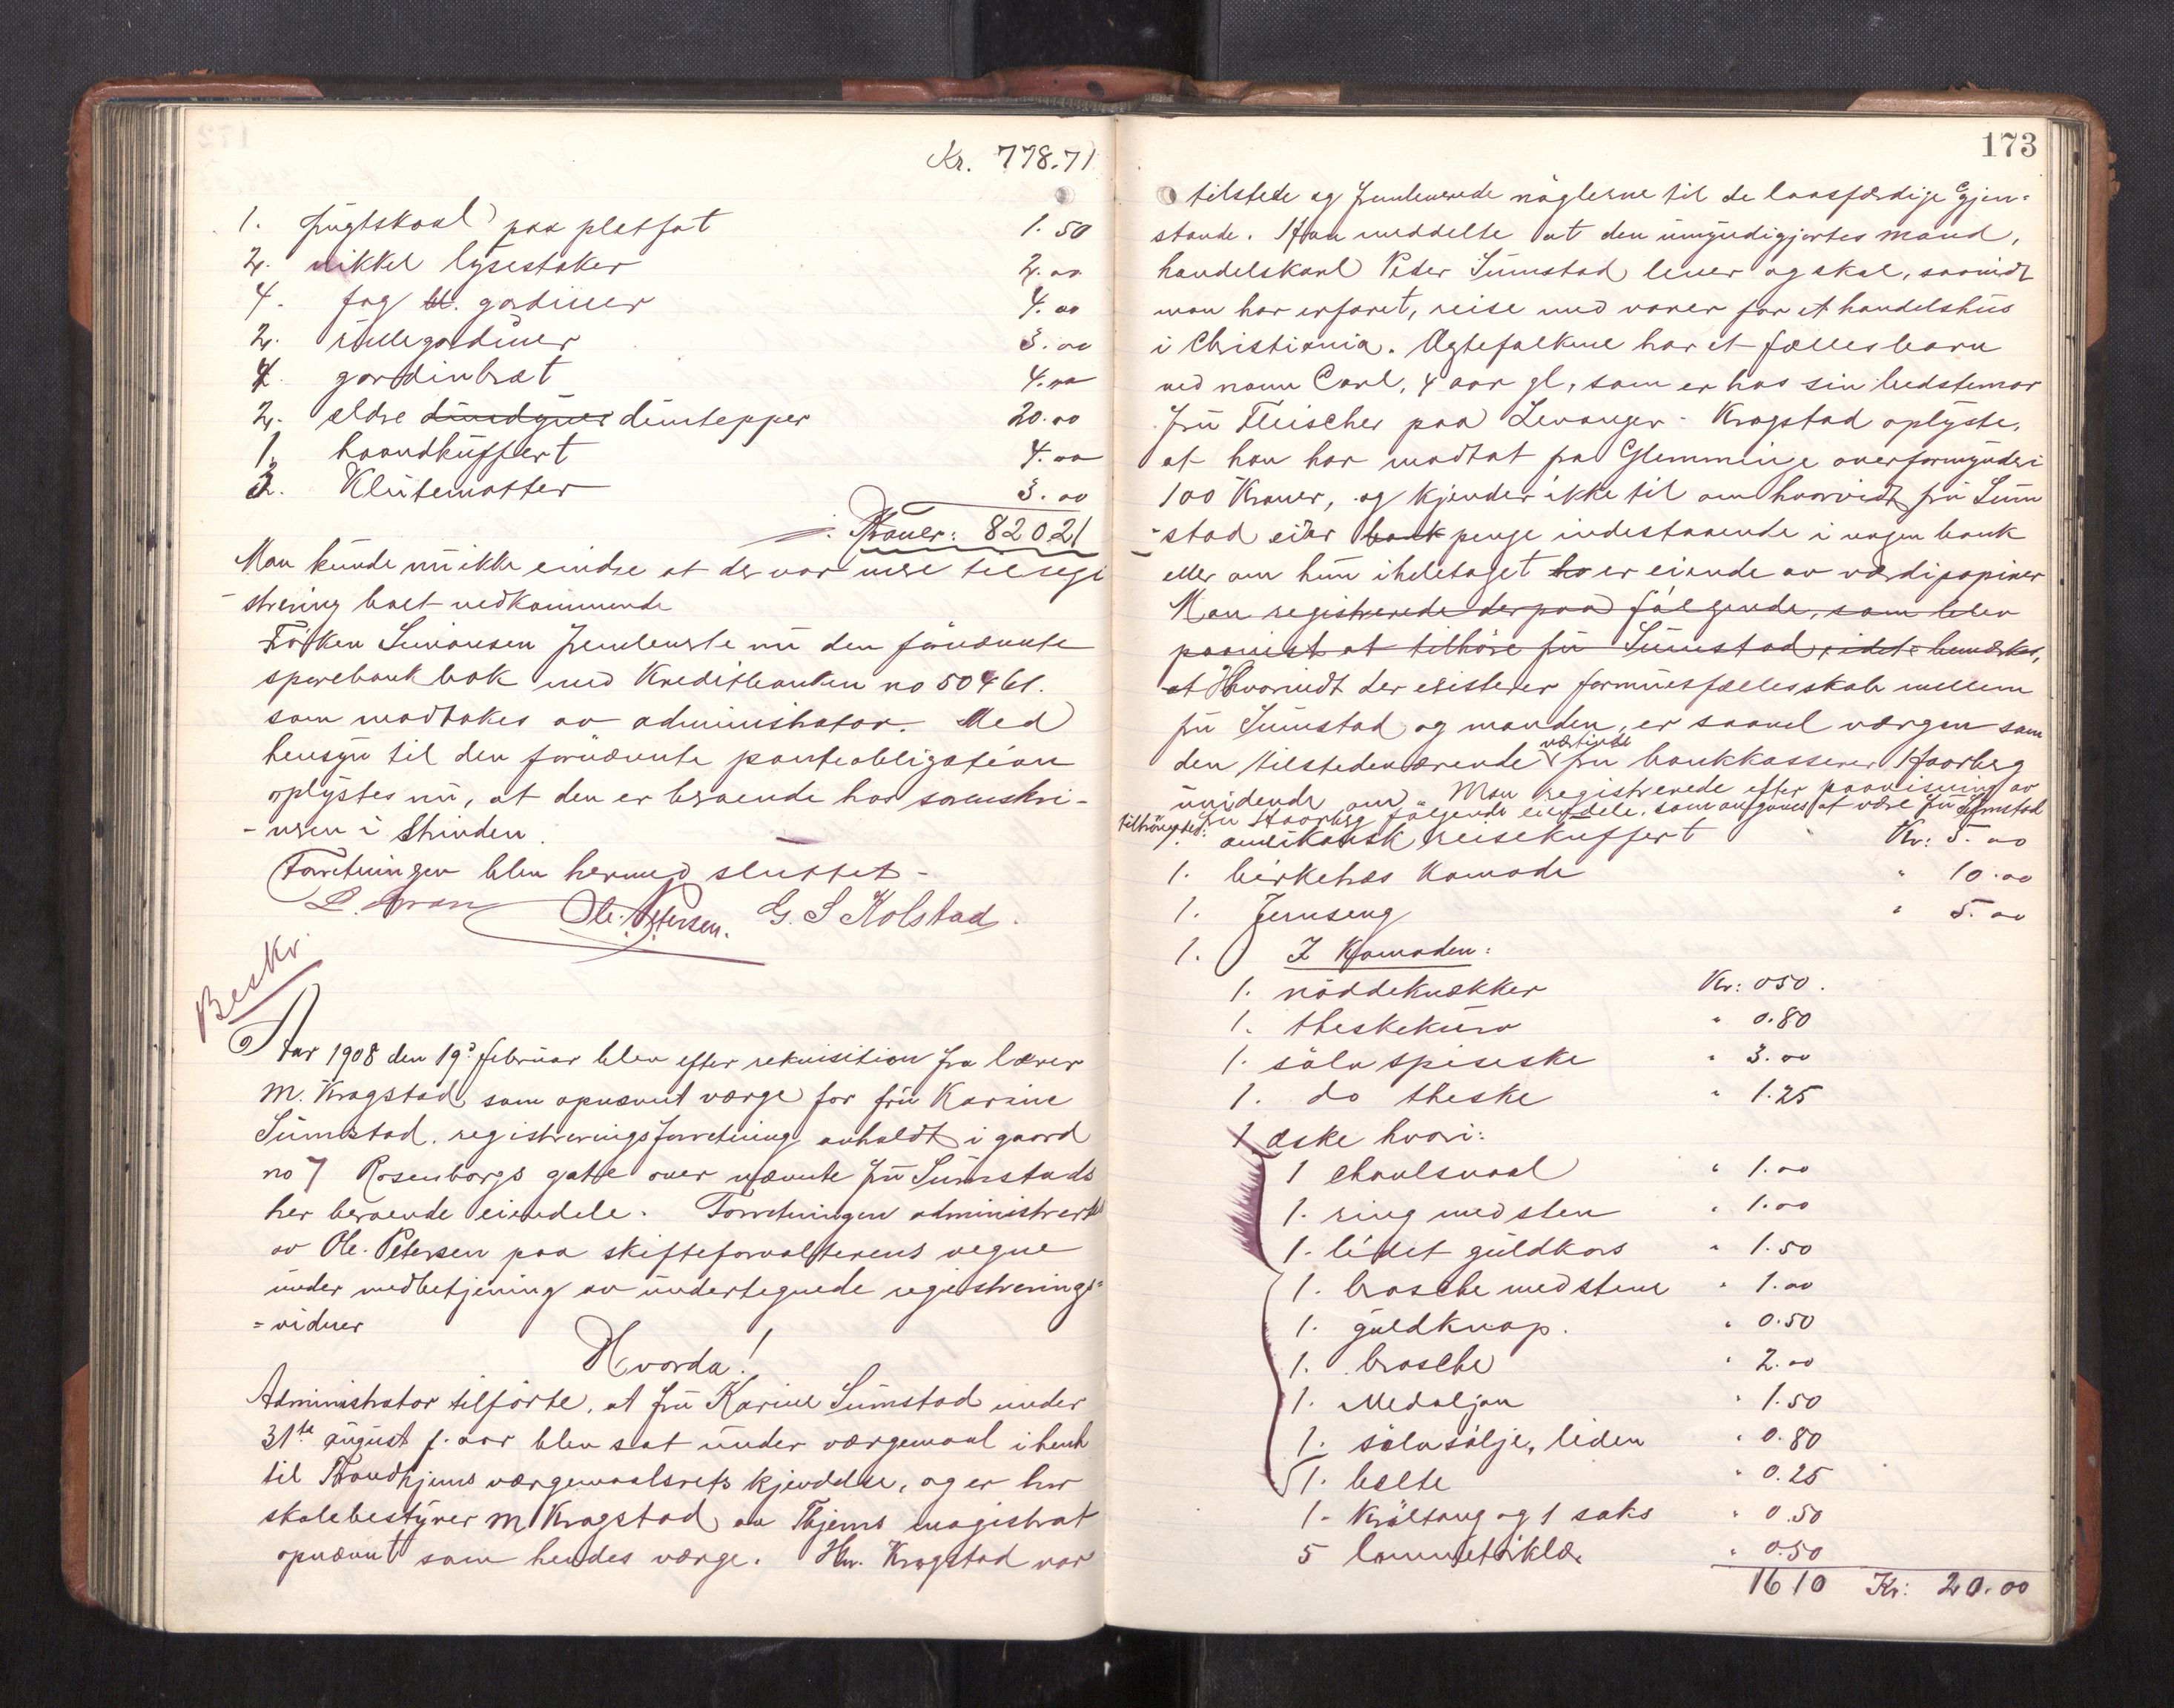 Kr. 778.71
1. frugtskaal paa pletfat 1.50
2. nikkel lysestaker 2.00
4. fag bl. gardiner 4.00
2. rullegardiner 3.00
4 gardinbræt 4.00
2. ældre dundyner duntepper 20.00
1. haandkuffert 4.00
3. Klutematter 3.00
Kroner: 820.21
Man kunde nu ikke eindse at der var mere til regi
-strering boet vedkommende
Frøken Simonsen fremleverte nu den førnævnte
sparebankbok med Kreditbanken no 50461.
som modtakes av administrator. Med
hensyn til den fornævnte panteobligation
oplystes nu, at den er beroende hos sorenskri-
-veren i Strinden.
Forretningen blev hermed sluttet -
Ole. Petersen. G. S Kolstad.
Beskr.
Aar 1908 den 19de februar blev efter rekvisition fra lærer
M. Kragstad som opnævnt værge for fru Karine
Sumstad, registreringsforretning avholdt i gaard
no 7 Rosenborgs gate over nævnte fru Sumstads
her beroende eiendele. Forretningen administrert
av Ole. Petersen paa skifteforvalterens vegne
under medbetjening av undertegnede registrerings=
=vidner
Hvorda!
Administrator tilførte, at fru Karine Sumstad under
31te august f. aar blev sat under værgemaal i henh
til Trondhjems værgemaalsrets kjendelse, og er hr
skolebestyrer M Kragstad av Thjems magistrat
opnævnt som hendes værge. Hr. Kragstad var
173
tilstede og fremleverede nøglerne til de laasfærdige Gjen=
stande. Han meddelte at den umyndigjortes mand,
handelskarl Peder Sumstad lever og skal, saavidt
man har erfaret, reise med varer for et handelshus
i Christiania. Ægtefolkene har et fællesbarn
ved navn Carl, 4 aar gl, som er hos sin bedstemor
fru Fleischer paa Levanger - Kragstad oplyste,
at han har modtat fra Glemminge overformynderi
100 Kroner, og kjender ikke til om hvorvidt fru Sum
-stad eier bank penge indestaaende i nogen bank
eller om hun iheletaget ha er eiende av værdipapirer
Man registrerede derpaa følgende, som blev
paavist at tilhøre fru Sumstad, idet bemærkes,
at Hvorvidt der existerer formuesfællesskab mellem
fru Sumstad og manden, er saavel værgen som
den tilstedeværende værtinde fru bankkasserer Haarberg
uvidende om. Man registrerede efter paavisning av
fru Haarberg følgende eiendele, som angives at være fru Sumstad
tilhørighed:
1. amerikansk reisekuffert Kr: 5.00
1. birketræs Komode " 10.00
1. Jernseng " 5.00
1. I Komoden:
1. nøddeknækker Kr: 050.
1. theskekurv " 0.80
1. sølv spiseske " 3.00
1. do theske " 1.25
1 æske hvori:
1 chaulsnaal " 1.00
1. ring med sten " 1.00
1. lidet guldkors " 1.50
1. brosche med stene " 1.00
1. guldknap. " 0.50
1. brosche " 2.00
1. Medaljon " 1.50
1. sølvsølje, liden " 0.80
1. belte " 0.25
1- Krøltang og 1 saks " 0.50
5 lommetørklæ. " 0.50
1610 Kr: 20.00